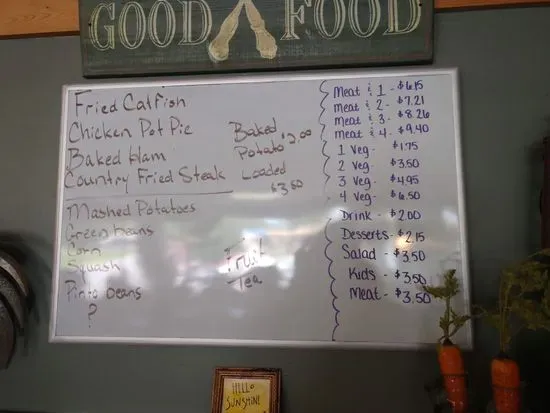 GOOD FOOD
Fried Catfish
Chicken Pot Pie
Baked Ham
Country Fried Steak
Baked
Potato $2.00
Loaded
$3.50
Mashed Potatoes
Green beans
Corn
Squash
Pinto beans
?
Fruit
Tea
Meat & 1 - $6.15
Meat & 2 - $7.21
Meat & 3 - $8.26
Meat & 4 - $9.40
1 Veg - $1.75
2 Veg - $3.50
3 Veg - $4.95
4 Veg - $6.50
Drink - $2.00
Desserts - $2.15
Salad - $3.50
Kids - $3.50
Meat - $3.50
HELLO
SUNSHINE